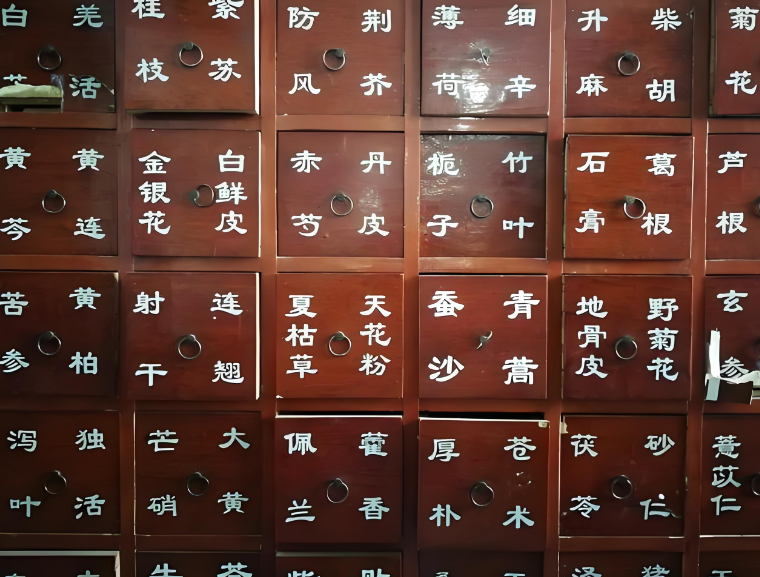 白
羌活
桂枝
紫苏
防风
荆芥
薄荷
细辛
升麻
柴胡
菊花
黄芩
黄连
金银花
白鲜皮
赤芍
丹皮
栀子
竹叶
石膏
葛根
芦根
苦参
黄柏
射干
连翘
夏枯草
天花粉
蚕沙
青蒿
地骨皮
野菊花
玄参
泻叶
独活
芒硝
大黄
佩兰
藿香
厚朴
苍术
茯苓
砂仁
薏苡仁